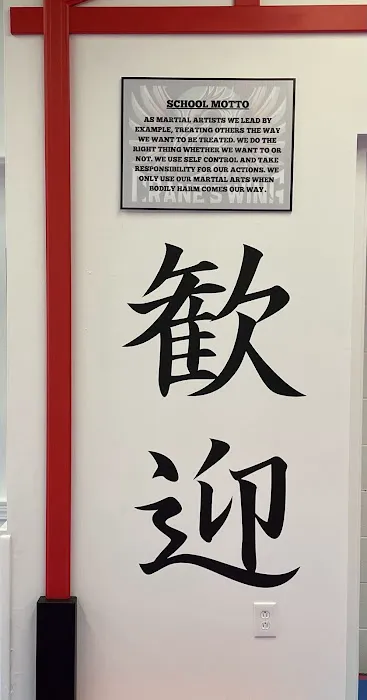 SCHOOL MOTTO
AS MARTIAL ARTISTS WE LEAD BY
EXAMPLE, TREATING OTHERS THE WAY
WE WANT TO BE TREATED. WE DO THE
RIGHT THING WHETHER WE WANT TO OR
NOT. WE USE SELF CONTROL AND TAKE
RESPONSIBILITY FOR OUR ACTIONS. WE
ONLY USE OUR MARTIAL ARTS WHEN
BODILY HARM COMES OUR WAY.
CRANE'S WING
歓
迎